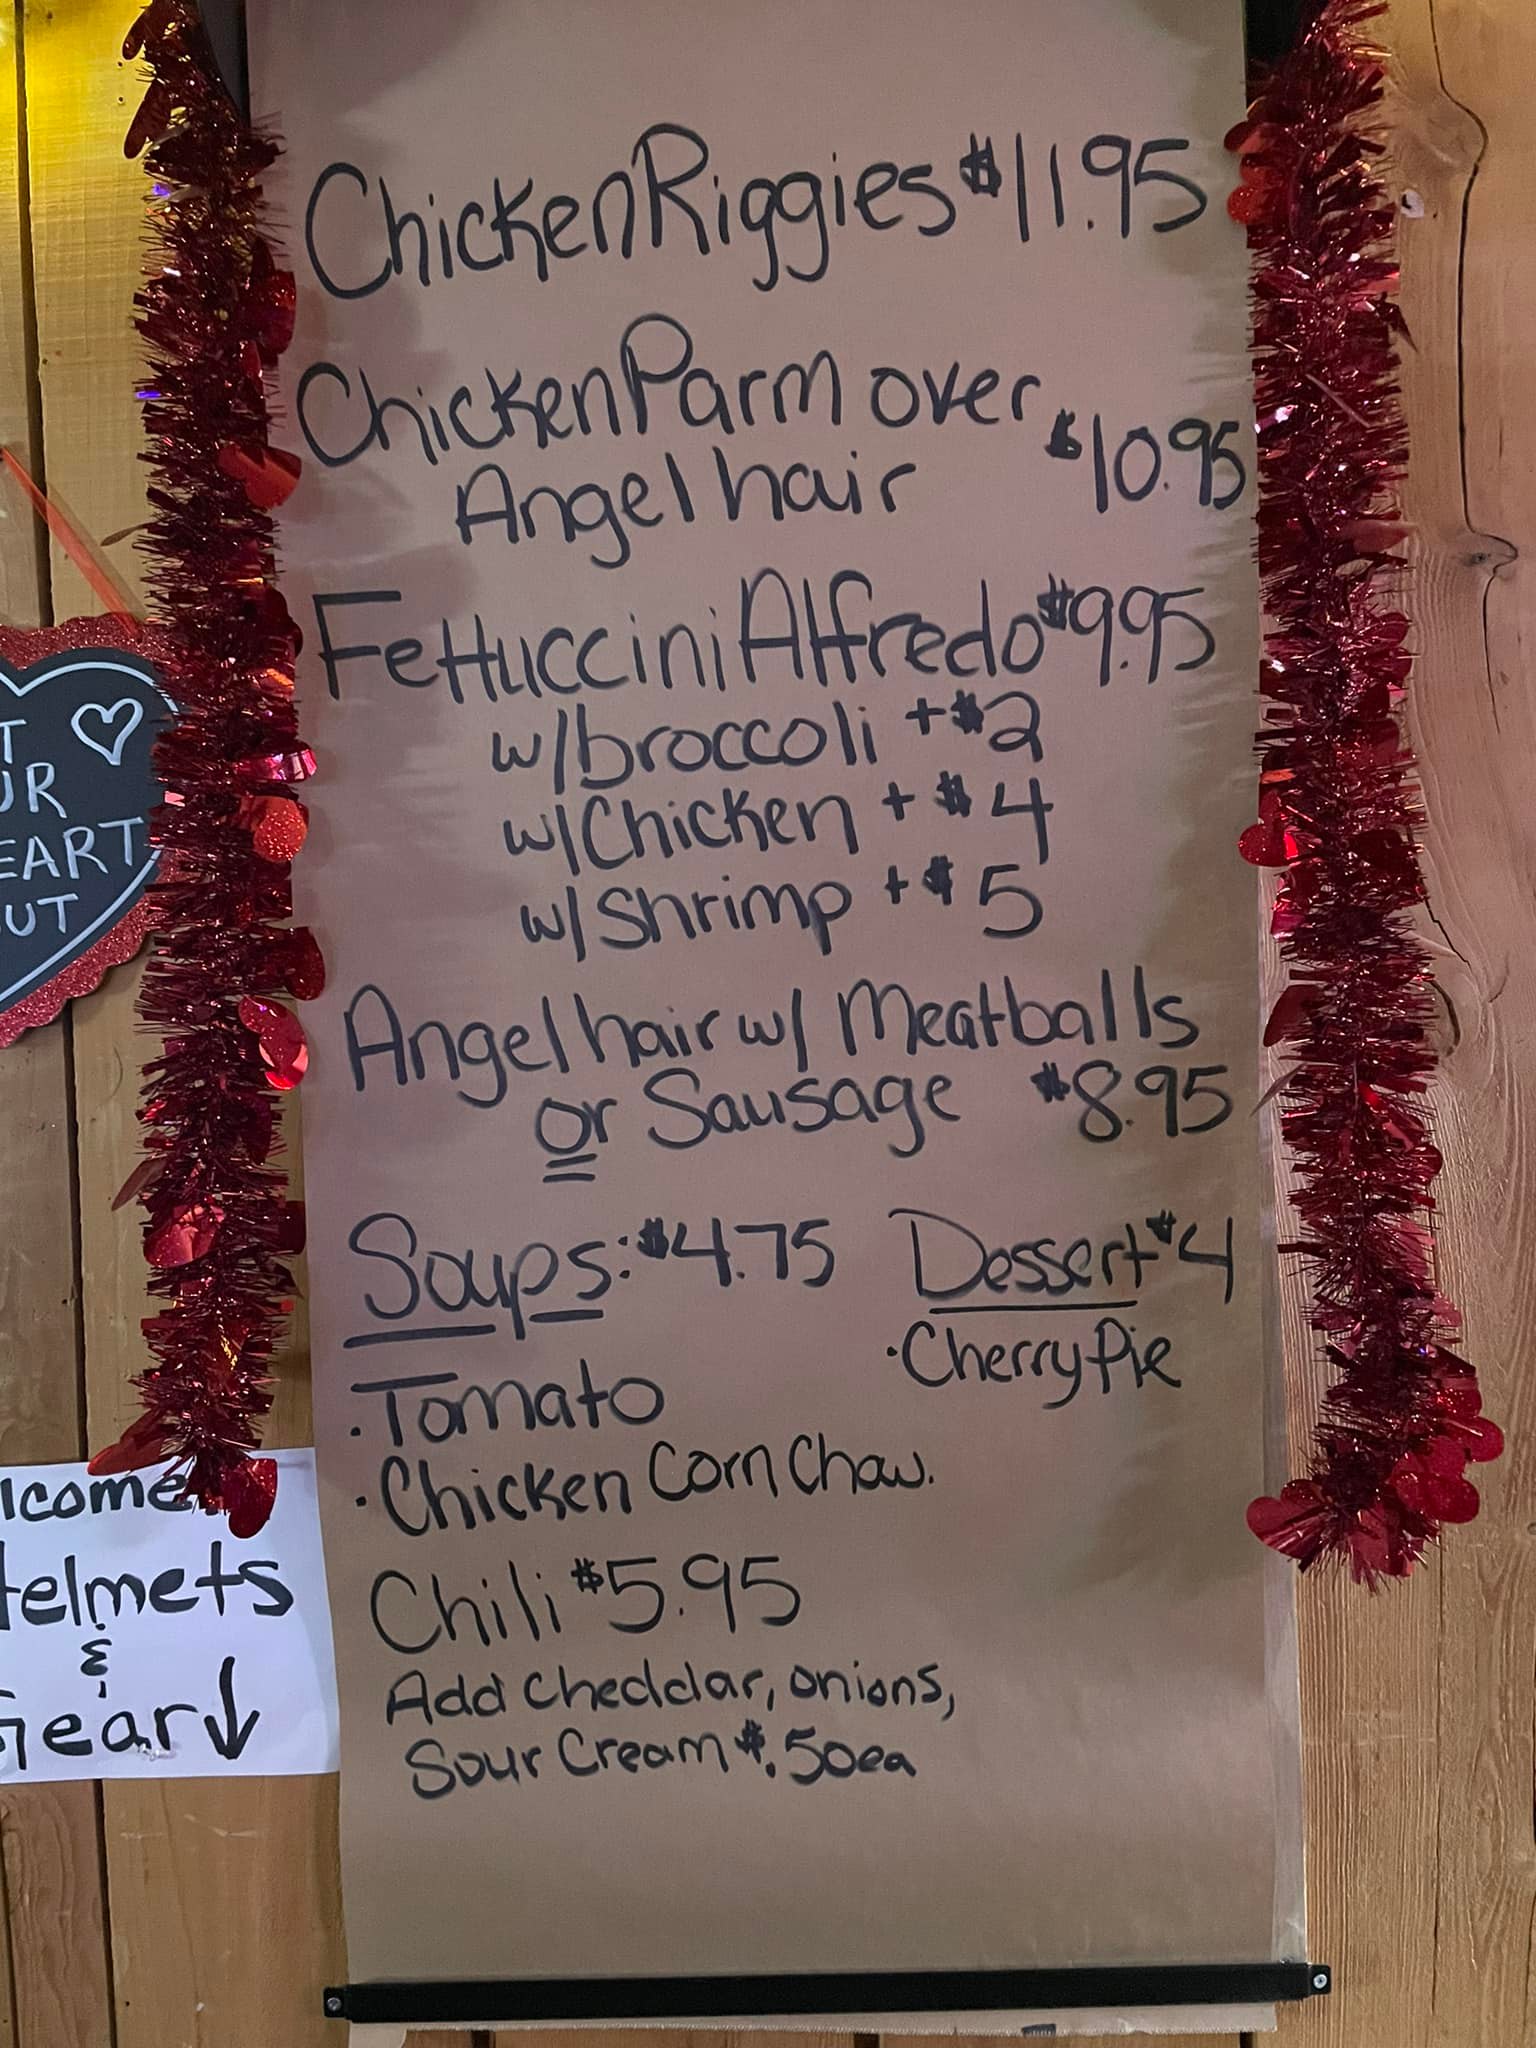 Chicken Riggies $11.95
Chicken Parm over
Angel hair $10.95
Fettuccini Alfredo $9.95
w/broccoli +$2
w/Chicken +$4
w/Shrimp +$5
Angel hair w/ Meatballs
or Sausage $8.95
Soups: $4.75
· Tomato
· Chicken Corn Chow.
Dessert $4
· Cherry Pie
Chili $5.95
Add Cheddar, onions,
Sour Cream $.50ea
T
UR
EART
UT
lcome
Helmets
&
Gear ↓